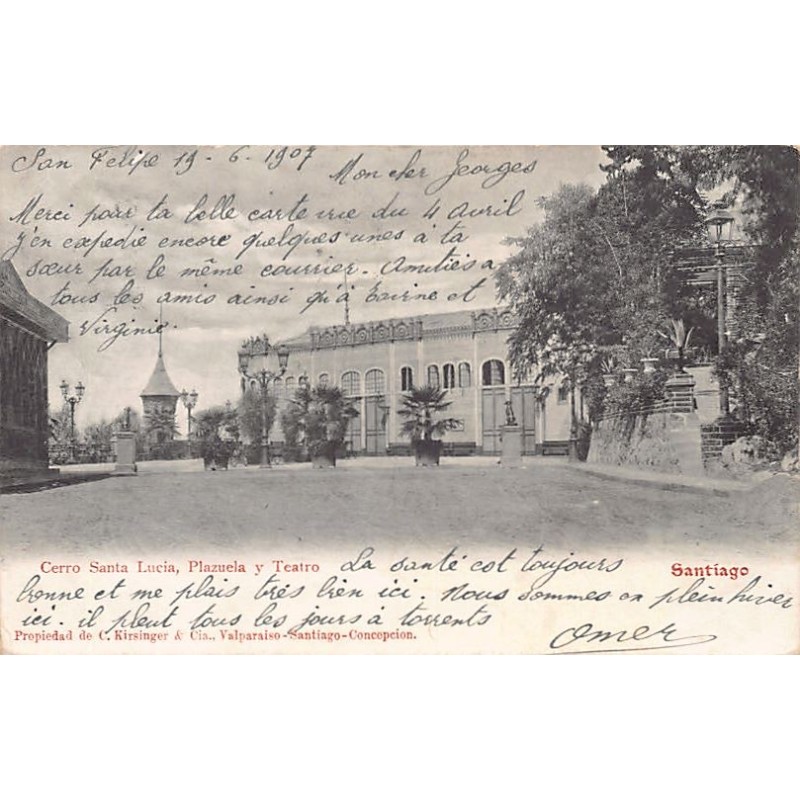 San Felipe 19-6-1907
Mon cher Georges
Merci pour ta belle carte vue du 4 Avril
j'en expédie encore quelques unes à ta
sœur par le même courrier. Amitiés a
tous les amis ainsi qu'à et
Virginie.
Cerro Santa Lucia, Plazuela y Teatro
Santiago
La santé est toujours
bonne et me plais très bien ici. Nous sommes en plein hiver
ici. il pleut tous les jours à torrents
Omer
Propiedad de C. Kirsinger & Cia., Valparaiso-Santiago-Concepcion.